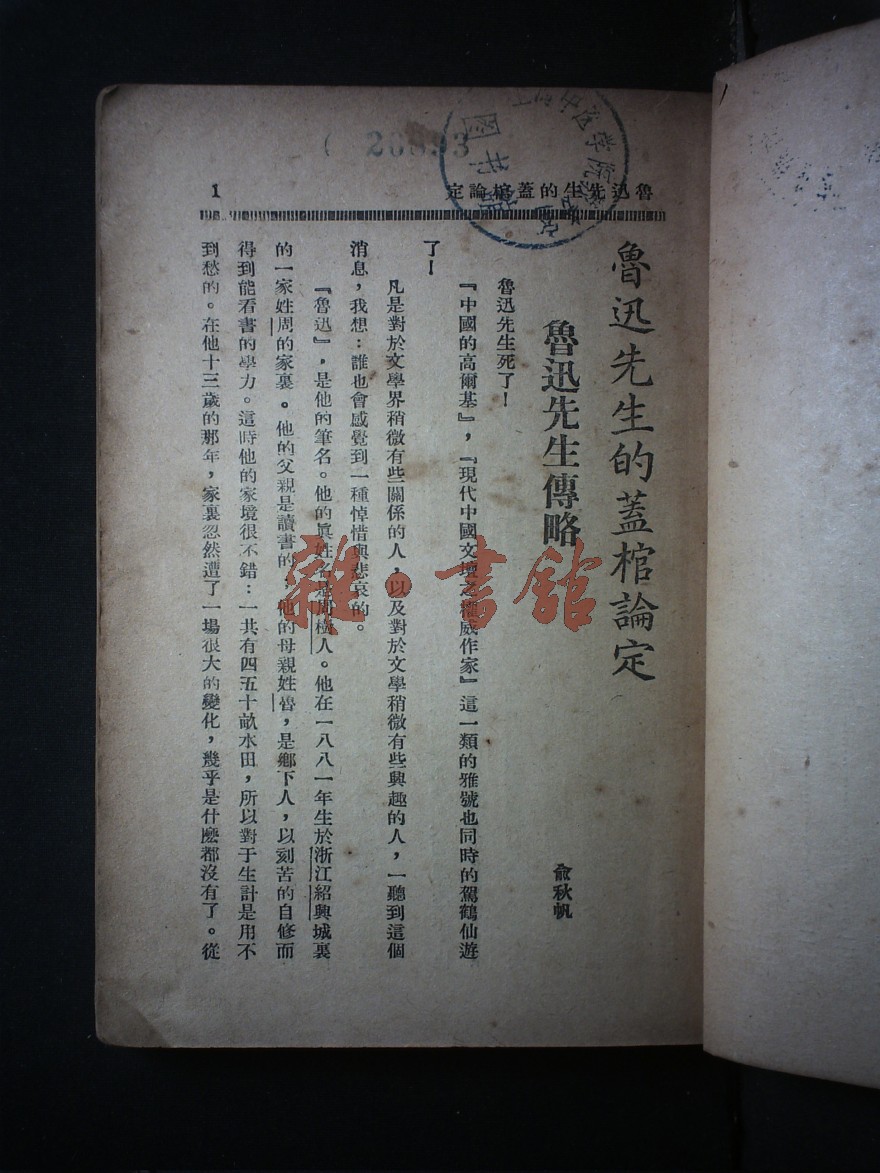 26893
魯迅先生的蓋棺論定
1
魯迅先生的蓋棺論定
魯迅先生傳略
俞秋帆
魯迅先生死了！
『中國的高爾基』，『現代中國文壇之權威作家』這一類的雅號也同時的駕鶴仙遊
了！
凡是對於文學界稍微有些關係的人，以及對於文學稍微有些興趣的人，一聽到這個
消息，我想：誰也會感覺到一種悼惜與悲哀的。
『魯迅』，是他的筆名。他的眞姓名是周樹人。他在一八八一年生於浙江紹興城裏
的一家姓周的家裏。他的父親是讀書的；他的母親姓魯，是鄉下人，以刻苦的自修而
得到能看書的學力。這時他的家境很不錯：一共有四五十畝水田，所以對于生計是用不
到愁的。在他十三歲的那年，家裏忽然遭了一場很大的變化，幾乎是什麽都沒有了。從
雜·書館
圖書館